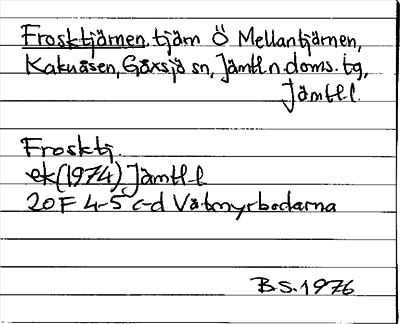 Frosktjärnen, tjärn Ö Mellantjärnen,
Kakuåsen, Gåxsjö sn, Jämtl. n. doms. tg,
Jämtl l.
Frosktj.
ek (1974) Jämtl-l
20F 4-5 c-d Våtmyrbodarna
B.S. 1976